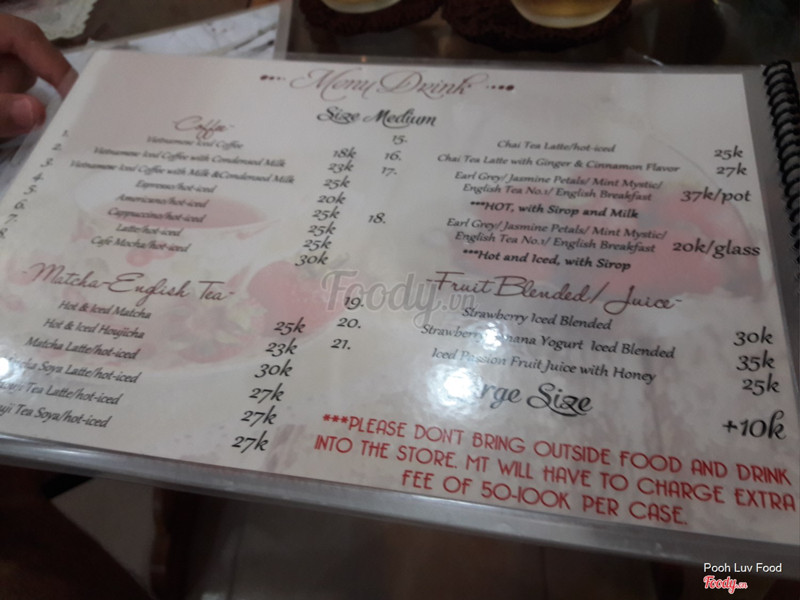 Menu Drink
Size Medium
Coffee
1. Vietnamese Iced Coffee 18k
2. Vietnamese Iced Coffee with Condensed Milk 23k
3. Vietnamese Iced Coffee with Milk & Condensed Milk 25k
4. Espresso/hot-iced 20k
5. Americano/hot-iced 25k
6. Cappuccino/hot-iced 25k
7. Latte/hot-iced 25k
8. Cafe Mocha/hot-iced 30k
Matcha-English Tea
Hot & Iced Matcha 25k
Hot & Iced Houjicha 23k
Matcha Latte/hot-iced 30k
Soya Latte/hot-iced 27k
Tea Latte/hot-iced 27k
Tea Soya/hot-iced 27k
15. Chai Tea Latte/hot-iced 25k
16. Chai Tea Latte with Ginger & Cinnamon Flavor 27k
17. Earl Grey/ Jasmine Petals/ Mint Mystic/
English Tea No.1/ English Breakfast 37k/pot
***HOT, with Sirop and Milk
18. Earl Grey/ Jasmine Petals/ Mint Mystic/
English Tea No.1/ English Breakfast 20k/glass
***Hot and Iced, with Sirop
Fruit Blended/ Juice
19. Strawberry Iced Blended 30k
20. Strawberry Banana Yogurt Iced Blended 35k
21. Iced Passion Fruit Juice with Honey 25k
Large Size +10k
***PLEASE DON'T BRING OUTSIDE FOOD AND DRINK
INTO THE STORE. MT WILL HAVE TO CHARGE EXTRA
FEE OF 50-100K PER CASE.
Foody.vn
Pooh Luv Food
Foody.vn